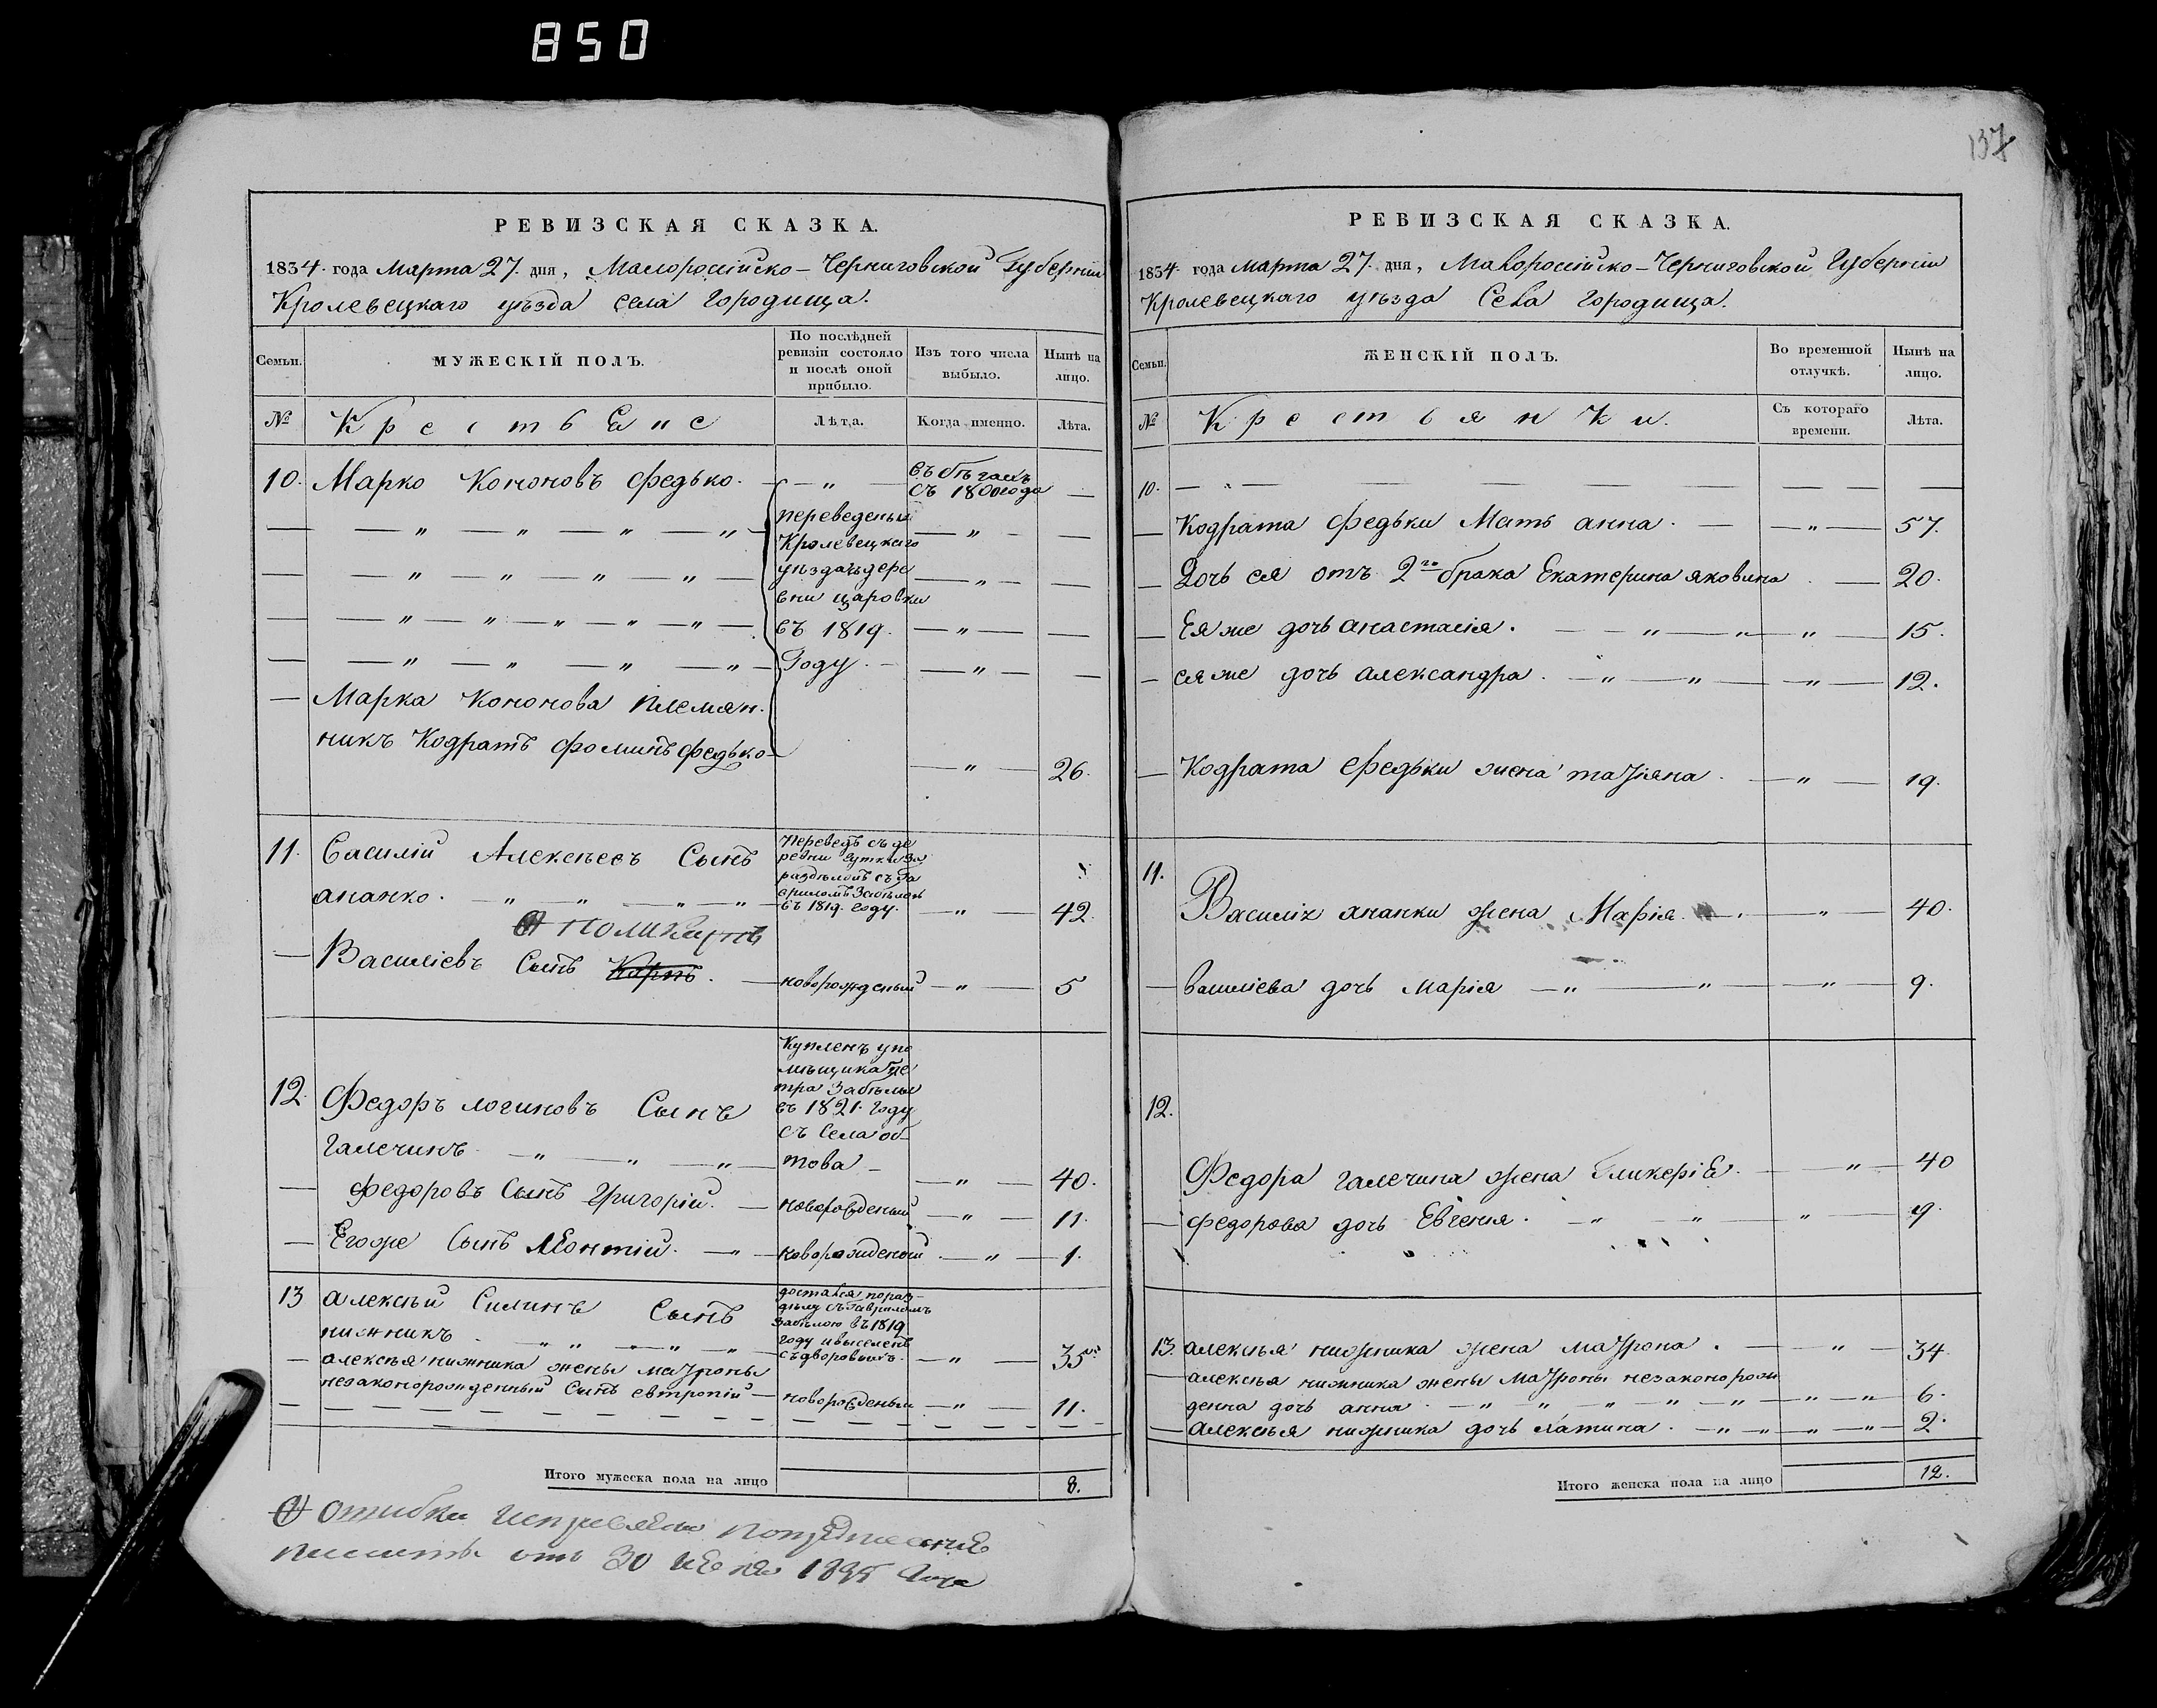 850
137
РЕВИЗСКАЯ СКАЗКА.
1834 года Марта 27 дня, Малороссійско-Черниговской Губерніи
Кролевецкаго уѣзда села Городища.
Семьи.
МУЖЕСКІЙ ПОЛЪ.
По послѣдней
ревизіи состояло
и послѣ оной
прибыло.
Изъ того числа
выбыло.
Нынѣ на
лицо.
№
Крестьяне
Лѣта.
Когда именно.
Лѣта.
10. Марко Кононовъ Федько. — „ — въ бѣгахъ
съ 1800 года —
переведены
Кролевецкаго
уѣзда дере
вни царовки
въ 1819.
Году.
Марка Кононова племян.
никъ Кодратъ Фоминъ Федько — „ — 26.
11. Василій Алексѣевъ Сынъ
ананко. — „ — „ — „ — „ —
Переведъ съ де
ревни
съ Га
вриломъ Забѣлою
въ 1819. году. — „ — 42.
Василіевъ Сынъ Карпъ. — новорожденый — „ — 5
12. Федоръ логиновъ Сынъ
галечинъ — „ — „ — „ —
Купленъ упо
мѣщика Пе
тра Забѣлы
въ 1821. Году
съ Села об
това — — „ — 40.
— Федоровъ Сынъ Григорій. — новорожденый — „ — 11.
— Егоже Сынъ Леонтій. — „ — новорожденой — „ — 1.
13 алексѣй Силинъ Сынъ
нижникъ — „ — „ — „ — „ —
достался пораз-
дѣлу съ Гавриломъ
Забѣлою въ 1819
году ивыселенъ
съ дворовыхъ. — „ — 35
— алексѣя нижника жены матроны
незаконорожденный Сынъ евтропій — новорожденый — „ — 11.
Итого мужеска пола на лицо 8.
Ошибка исправлена
от 30
РЕВИЗСКАЯ СКАЗКА.
1834 года марта 27. дня, Малоросійско-Черниговской Губерніи
Кролевецкаго уѣзда Села Городища.
Семьи.
ЖЕНСКІЙ ПОЛЪ.
Во временной
отлучкѣ.
Нынѣ на
лицо.
№
Крестьянки.
Съ котораго
времени.
Лѣта.
10. — „ — — — — — — —
— Кодрата Федьки Мать анна. — — „ — 57.
— Дочь ея отъ 2го брака Екатерина яковина . — 20.
— Ея же дочь анастасія. — „ — „ — „ — 15.
— ея же дочь александра. — „ — „ — „ — 12.
— Кодрата Федьки жена татіяна. — „ — 19.
11. Василія ананки жена Марія. — „ — 40.
— василіева дочь Марія — „ — „ — „ — 9.
12. Федора галечина жена Гликеріе. — „ — 40
— федорова дочь Евгенія. — „ — „ — „ — 9.
13. алексѣя нижника жена матрона. — „ — 34.
— алексѣя нижника жены матроны незаконорож
денна дочь анна. — „ — „ — „ — „ — „ — 6.
— алексѣя нижника дочь — „ — „ — „ — „ — 2.
Итого женска пола на лицо 12.